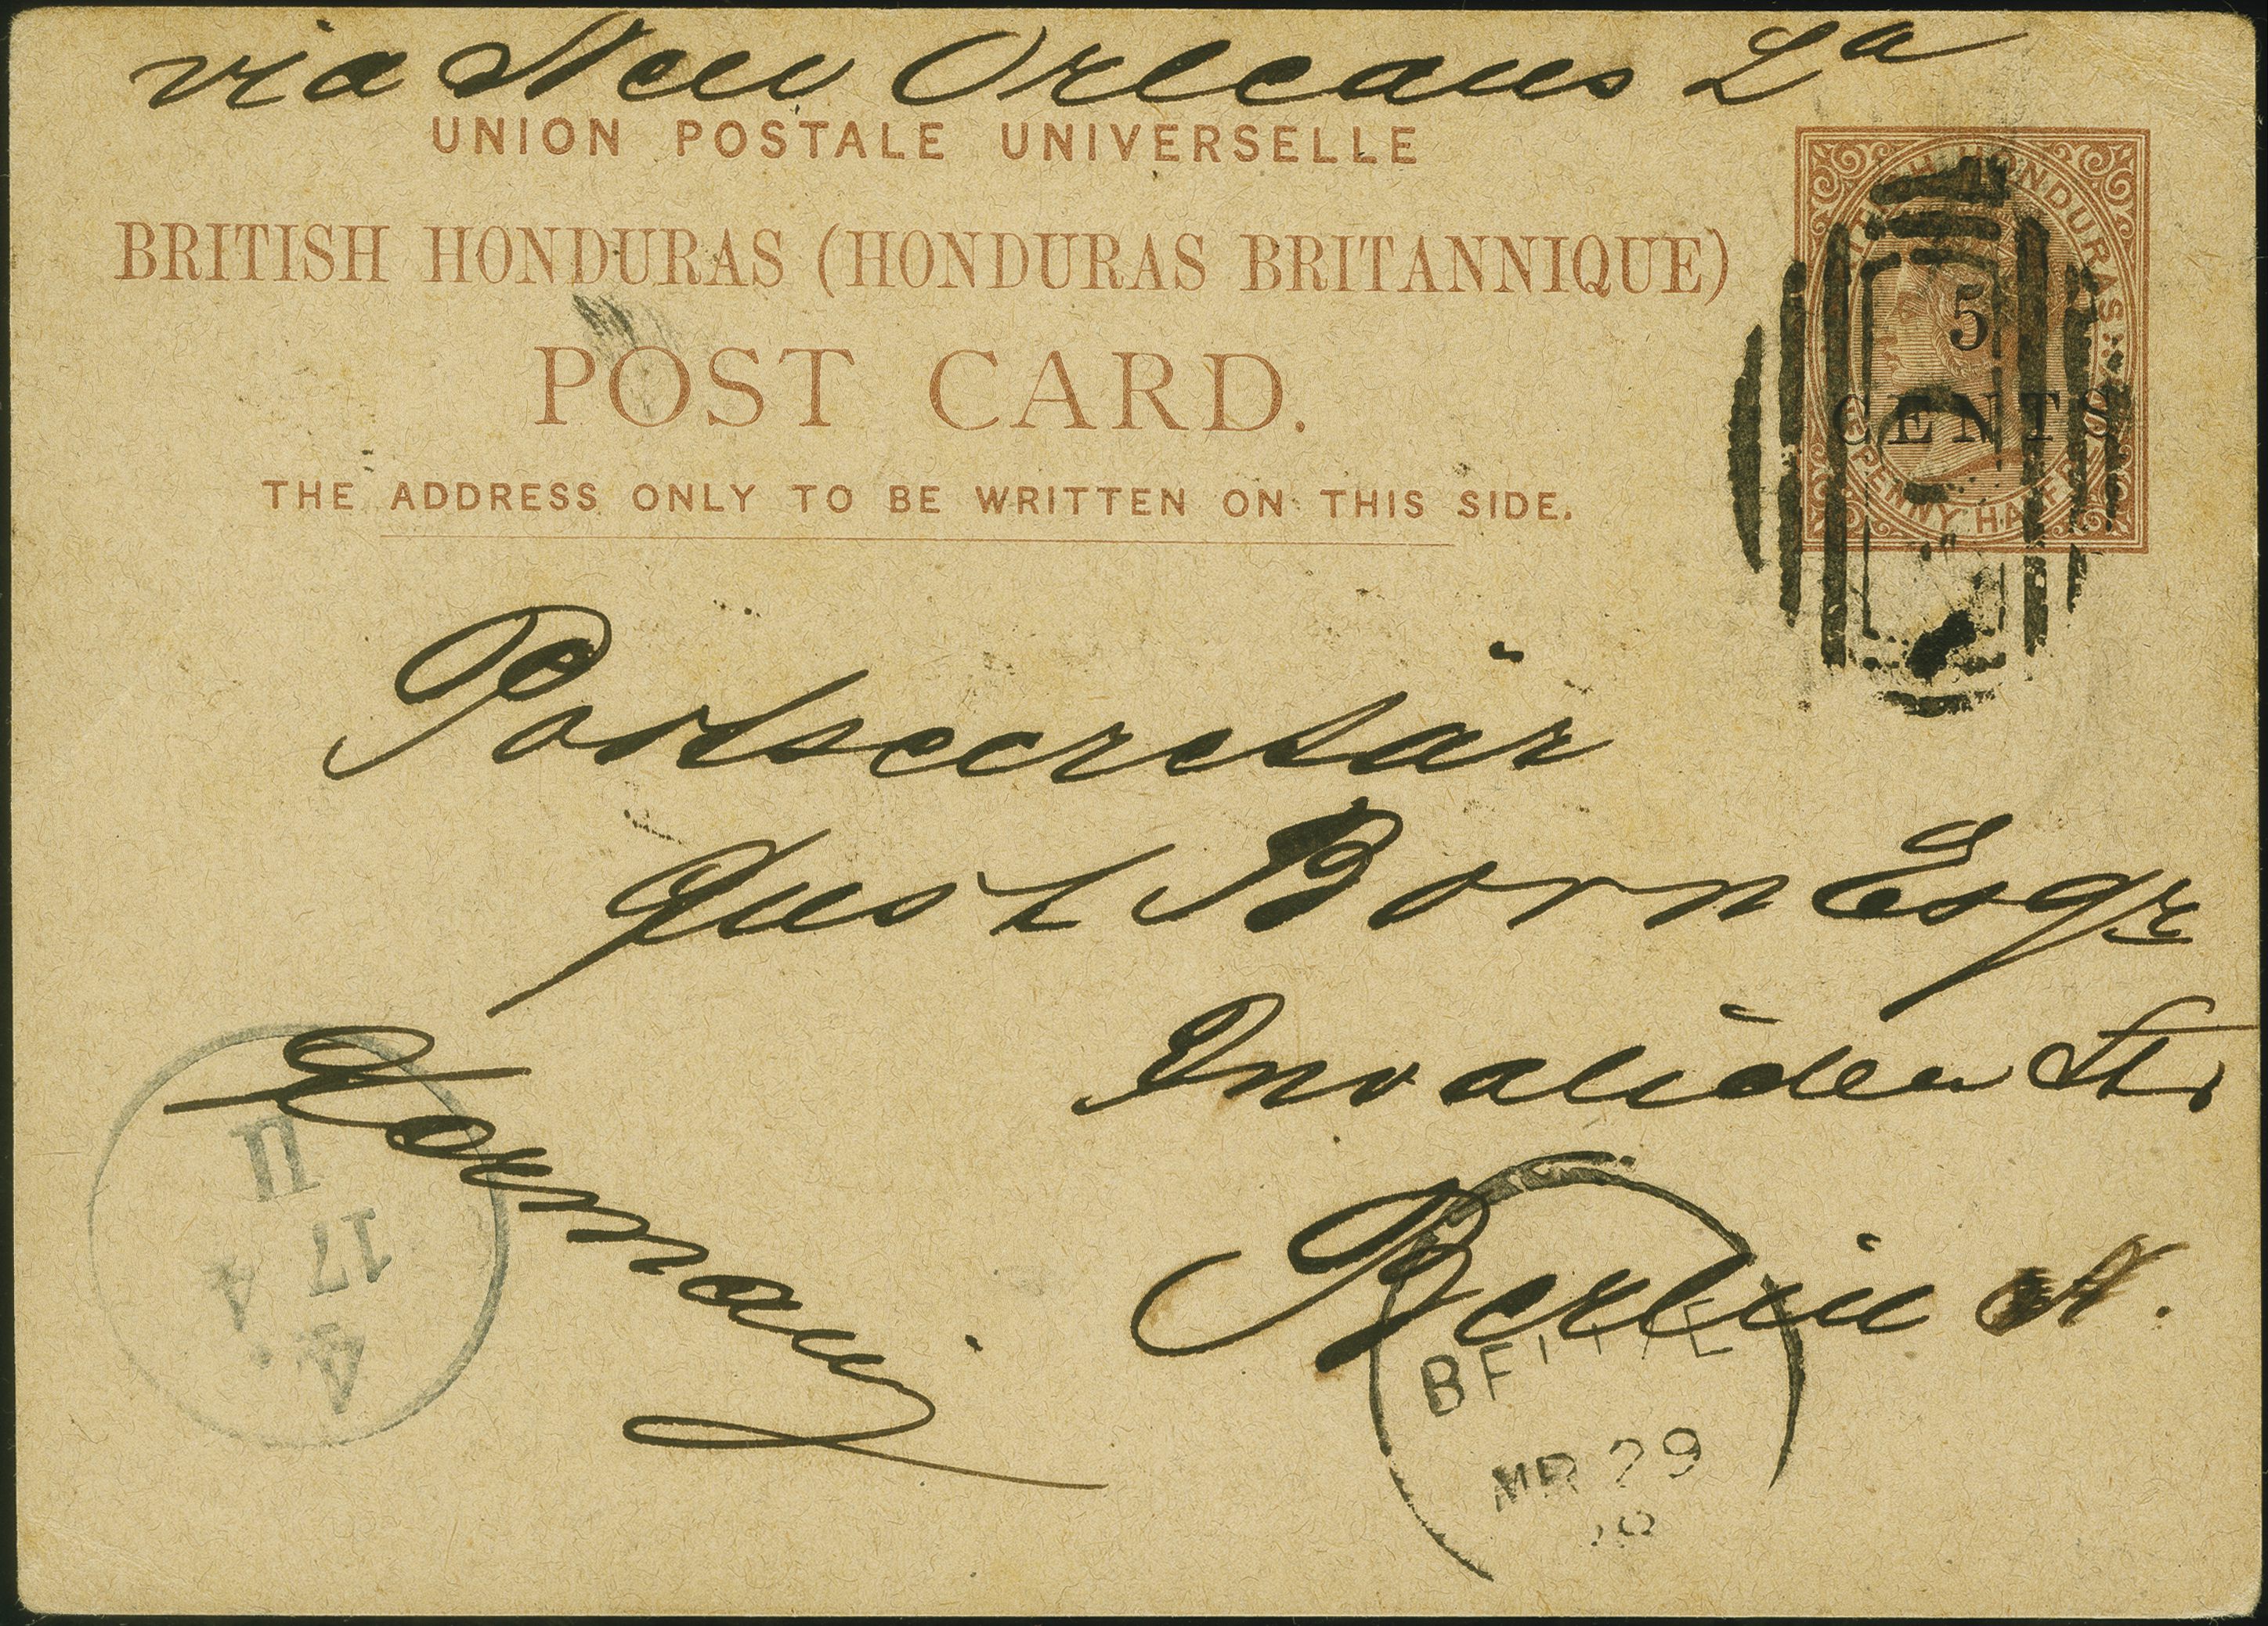 via New Orleans La
UNION POSTALE UNIVERSELLE
BRITISH HONDURAS (HONDURAS BRITANNIQUE)
POST CARD.
THE ADDRESS ONLY TO BE WRITTEN ON THIS SIDE.
BRITISH HONDURAS
5
CENTS
PENNY HALFPENNY
Postsecretär
Gust Born Esqr
Invaliden St.
Berlin N.
Germany
BELIZE
MR 29
17
4